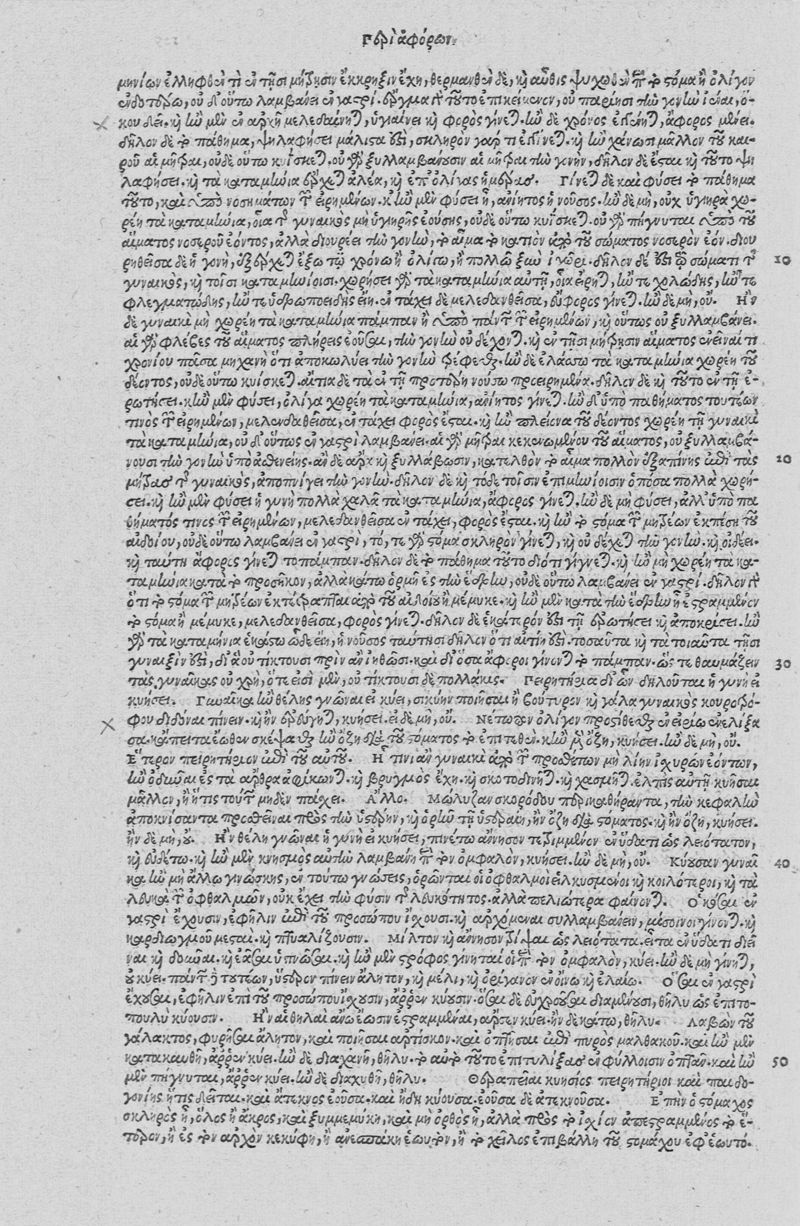 Περὶ ἀφόρων.
μηνίων ἐλλιφθὲν τὶ ἐν τῇσι μήτρῃσιν ἔκρηξιν ἔχῃ, θερμανθὲν δὲ, καὶ αὖθις ψυχθὲν τὸ στόμα ἢ ὀλίγον
οὐδ' οὕτω λαμβάνει ἐν γαστρί. ἔργμα γὰρ τοῦτο ἐπικείμενον, οὐ παρίησι τὴν γονὴν ἰέναι, ὅ-
κου δεῖ. καὶ ἢν μὲν ἐν ἀρχῇ μελεδαίνηται, ὑγιαίνει καὶ φορὸς γίνεται. ἢν δὲ χρόνος ἐγγένηται, ἄφορος μένει.
δῆλον δὲ τὸ πάθημα, ψηλαφήσει μάλιστα ἐστὶ, σκληρὸν γὰρ τι γίνεται. καὶ ἢν χάνωσι μᾶλλον τοῦ και-
ροῦ αἱ μῆτραι, οὐδὲ οὕτω κυΐσκεται. οὐ γὰρ ξυλλαμβάνουσιν αἱ μῆτραι τὴν γονὴν, δῆλον δὲ ἔσται καὶ τοῦτο ψη
λαφήσει. καὶ τὰ καταμήνια ἔρχεται ἁλέα, καὶ ἐπ' ὀλίγας ἡμέρας. Γίνεται δὲ καὶ φύσει τὸ πάθημα
τοῦτο, καὶ ὑπὸ νοσημάτων τῶν εἰρημένων. κἢν μὲν φύσει ᾖ, ἀνίητος ἡ νοῦσος. ἢν δὲ μὴ, οὐχ ὑγιηρὰ χω-
ρέῃ τὰ καταμήνια, οἷα τῆς γυναικὸς μὴ ὑγιηρῆς ἐούσης, οὐδὲ οὕτω κυΐσκεται. οὐ γὰρ πήγνυται ὑπὸ τοῦ
αἵματος νοσεροῦ ἐόντος, ἀλλὰ διουρέει τὴν γονὴν, τὸ αἷμα τὸ κατιὸν ἀπὸ τοῦ σώματος νοσερὸν ἐόν. διου
ρηθεῖσα δὲ ἡ γονὴ, ἐξέρχεται ἔξω τῷ χρόνῳ ἢ ὀλίγῳ, ἢ πολλῷ ξὺν ἰχῶρι. δῆλον δὲ ἐπὶ τῷ σώματι τῆς 10
γυναικὸς, καὶ τοῖσι καταμηνίοισι. χωρήσει γὰρ τὰ καταμήνια αὐτῇ, οἷα εἰρέθη, ἤν τε χολώδης, ἤν τε
φλεγματώδης, ἤν τε ὑδρωποειδὴς ἔῃ. ἐν τάχει δὲ μελεδανθεῖσα, εὔφορος γίνεται. ἢν δὲ μὴ, οὔ. Ἢν
δὲ γυναικὶ μὴ χωρέῃ τὰ καταμήνια πάμπαν ἢ ὑπὸ πάντων τῶν εἰρημένων, καὶ οὕτως οὐ ξυλλαμβάνει.
αἱ γὰρ φλέβες τοῦ αἵματος πλήρεις ἐοῦσαι, τὴν γονὴν οὐ δέχονται. καὶ ἐν τῇσι μήτρῃσιν αἵματος ἐνεῖναί τι
χρονίου πᾶσα μηχανὴ ὅτι ἀποκωλύει τὴν γονὴν τρέφεσθαι. ἢν δὲ ἐλάσσω τὰ καταμήνια χωρέῃ τοῦ
δέοντος, οὐδὲ οὕτω κυΐσκεται. αἴτια δὲ τὰ ἐν τῇ προτέρῃ νούσῳ προειρημένα. δῆλον δὲ καὶ τοῦτο ἐν τῇ ἐ-
ρωτήσει. κἢν μὲν φύσει, ὀλίγα χωρέῃ τὰ καταμήνια, ἀνίητος γίνεται. ἢν δ' ὑπὸ παθήματος τουτέων
τινὸς τῶν εἰρημένων, μελεδανθεῖσα, ἐν τάχει φορὸς ἔσται. καὶ ἢν πλείονα τοῦ δέοντος χωρέῃ τῇ γυναικὶ
τὰ καταμήνια, οὐδ' οὕτως ἐν γαστρὶ λαμβάνει. αἱ γὰρ μῆτραι κεκενωμένου τοῦ αἵματος, οὐ ξυλλαμβά-
νουσι τὴν γονὴν ὑπὸ ἀσθενείης. ἂν δὲ ἄρα καὶ ξυλλάβωσιν, κατελθὸν τὸ αἷμα πολλὸν ἐξαπίνης ἐπὶ τὰς 10
μήτρας τῆς γυναικὸς, ἀποπνίγει τὴν γονήν. δῆλον δὲ καὶ τόδε τοῖσιν ἐπιμηνίοισιν ὁπόσα πολλὰ χωρή-
σει. καὶ ἢν μὲν φύσει ἡ γυνὴ πολλὰ χαλᾷ τὰ καταμήνια, ἄφορος γίνεται. ἢν δὲ μὴ φύσει, ἀλλ' ὑπὸ πα
θήματός τινος τῶν εἰρημένων, μελεδανθεῖσα ἐν τάχει, φορὸς ἔσται. καὶ ἢν τὸ στόμα τῶν μητρέων ἐκπέσῃ τοῦ
αἰδοίου, οὐδὲ οὕτω λαμβάνει ἐν γαστρὶ, τό, τε γὰρ στόμα σκληρὸν γίνεται, καὶ οὐ δέχεται τὴν γονὴν. καὶ οἰδέει.
καὶ ταύτῃ ἄφορος γίνεται τοπάμπαν. δῆλον δὲ τὸ πάθημα τοῦτο διότι γίγνεται. καὶ ἢν μὴ χωρέῃ τὰ κα-
ταμήνια κατὰ τὸ προσῆκον, ἀλλὰ κάτω ὁρμῇ ἐς τὴν ἕδρην, οὐδὲ οὕτω λαμβάνει ἐν γαστρί. δῆλον γὰρ
ὅτι τὸ στόμα τῶν μητρέων ἐκτέτραπται ἀπὸ τοῦ αἰδοίου ἢ μέμυκε. καὶ ἢν μὲν κατὰ τὴν ἕδρην ᾖ ἐστραμμένον
τὸ στόμα ἢ μέμυκε, μελεδανθεῖσα, φορὸς γίνεται. δῆλον δὲ ἑκάτερον ἐστὶ τῇ ἐρωτήσει καὶ ἀποκρίσει. ἢν
γὰρ τὰ καταμήνια ἑκάστῳ ὧδε ἔῃ, ἡ νοῦσος ταύτῃσι δῆλον ὅτι αὕτη ἐστί. τοσαῦτα καὶ τὰ τοιαῦτα τῇσι
γυναιξίν ἐστὶ, δι' ἃ οὐ τίκτουσι πρὶν ἂν ἰηθῶσι. καὶ δι' ὅσα ἄφοροι γίνονται τὸ πάμπαν. ὥστε θαυμάζειν 30
τὰς γυναῖκας οὐ χρὴ, ὅτε εἰσὶ μὲν, οὐ τίκτουσι δὲ πολλάκις. Πειρητήρια δι' ὧν δηλοῦται ἡ γυνὴ εἰ
κυήσει. Γυναῖκα ἢν θέλῃς γνῶναι εἰ κύει, σικύην ποιῆσαι ἢ βούτυρον καὶ γάλα γυναικὸς κουροτρό-
φου διδόναι πίνειν. καὶ ἢν ἐρεύγῃ, κυήσει. εἰ δὲ μὴ, οὔ. Νέτωπον ὀλίγον προστίθεσθαι ἐν εἰρίῳ ἐνελίξα
σα. κἄπειτα ἕωθεν σκέψασθαι ἢν ὄζῃ διὰ τοῦ στόματος τὸ ἐπιτεθέν. κἢν μὲν ὄζῃ, κυήσει. ἢν δὲ μὴ, οὔ.
Ἕτερον πειρητήριον ἐπὶ τοῦ αὐτοῦ. Ἤ τινι ἂν γυναικὶ ἀπὸ τῶν προσθέτων μὴ λίην ἰσχυρῶν ἐόντων,
ἢν ὀδύναι ἐς τὰ ἄρθρα ἀφίκωνται. καὶ βρυγμὸς ἔχῃ. καὶ σκοτοδινῇ. καὶ χασμῆται. ἐλπὶς αὐτῇ κυῆσαι
μᾶλλον, ἢ ἥτις τούτων μηδὲν πάσχει. Ἄλλο. Μώλυζαν σκορόδου περικαθήραντα, τὴν κεφαλὴν
ἀποκνίσαντα προσθεῖναι πρὸς τὴν ὑστέρην, καὶ ὁρῆν τῇ ὑστεραίῃ, ἢν ὄζῃ διὰ στόματος. καὶ ἢν ὄζῃ, κυήσει.
ἢν δὲ μὴ, οὔ. Ἢν θέλῃ γνῶναι ἡ γυνὴ εἰ κυήσει, πινέτω ἄννησον τετριμμένον ἐν ὕδατι ὡς λειότατον,
καὶ εὑδέτω. καὶ ἢν μὲν κνησμὸς αὐτὴν λαμβάνῃ περὶ τὸν ὀμφαλὸν, κυήσει. ἢν δὲ μὴ, οὔ. Κύουσαν γυναῖ 40
κα ἢν μὴ ἄλλῳ γινώσκῃς, ἐν τούτῳ γνώσεις, ὁρῶνται οἱ ὀφθαλμοὶ εἱλκυσμένοι καὶ κοιλότεροι, καὶ τὰ
λευκὰ τῶν ὀφθαλμῶν, οὐκ ἔχει τὴν φύσιν τῆς λευκότητος. ἀλλὰ πελιώτερα φαίνονται. Ὁκόσαι ἐν
γαστρὶ ἔχουσιν, ἐφηλιν ἐπὶ τοῦ προσώπου ἴσχουσι. καὶ ἀρχόμεναι συλλαμβάνειν, μίσοινοι γίνονται. καὶ
καρδιωγμοῦ μεσταί. καὶ πτυαλίζουσιν. Μίλτον καὶ ἄννησον τρῖψαι ὡς λειότατα. εἶτα ἐν ὕδατι διεῖ
ναι καὶ δοῦναι. καὶ ἐᾶσαι ὑπνῶσαι. καὶ ἢν μὲν στρόφος γίνηται οἱ περὶ τὸν ὀμφαλὸν, κύει. ἢν δὲ μὴ γίνηται,
οὐ κύει. πάντων δὲ τουτέων, ὕστερον πίνειν ἄλητον, καὶ μέλι, καὶ ὀρίγανον ἐν οἴνῳ καὶ ἐλαίῳ. Ὅσαι ἐν γαστρὶ
ἔχουσαι, ἔφηλιν ἐπὶ τοῦ προσώπου ἴσχουσιν, ἄρσεν κύουσιν. ὅσαι δὲ εὐχροοῦσαι διαμένουσι, θῆλυ ὡς ἐπιτο-
πουλὺ κύουσιν. Ἢν αἱ θηλαὶ ἄνω ἔωσιν ἐστραμμέναι, ἄρσεν κύει. ἢν δὲ κάτω, θῆλυ. Λαβὼν τοῦ
γάλακτος, φυρῆσαι ἄλητον, καὶ ποιῆσαι ἀρτίσκον. καὶ ὀπτῆσαι ἐπὶ πυρὸς μαλθακοῦ. καὶ ἢν μὲν
κατακαυθῇ, ἄρσεν κύει. ἢν δὲ διαχάνῃ, θῆλυ. τὸ αὐτὸ τοῦτο ἐπιτυλίξας ἐν φύλλοισιν ὀπτᾷν. καὶ ἢν 50
μὲν πήγνυται, ἄρσεν κύει. ἢν δὲ διαχυθῇ, θῆλυ. Θεραπεῖαι κυήσιος πειρητήριοι καὶ παιδο-
γονίης ἥτις δεῖται. καὶ ἄτεκνος ἐοῦσα. καὶ ἤδη κύουσα. ἐοῦσα δὲ ἀτεκνοῦσα. Ἐπὴν ὁ στόμαχος
σκληρὸς ᾖ, ὅλος ἢ ἄκρος, καὶ ξυμμεμύκῃ, καὶ μὴ ὀρθὸς ᾖ, ἀλλὰ πρὸς τὸ ἰσχίον ἀπεστραμμένος τὸ ἕ-
τερον, ἢ ἐς τὸν ἀρχὸν κεκύφῃ, ἢ ἀνεσπάκῃ ἑωυτὸν, ἢ τὸ χεῖλος ἐπιβάλλῃ τοῦ στομάχου ἐφ' ἑωυτό.